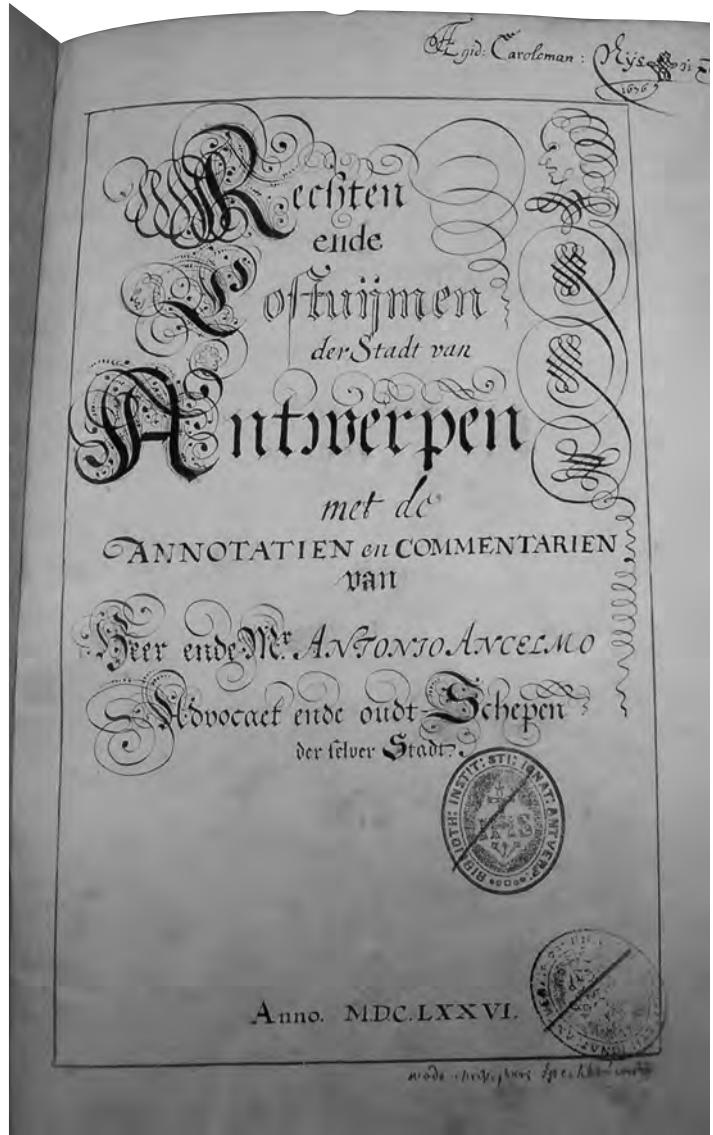 Ægid: Caroleman: Nijs
1676
Rechten
ende
Costuijmen
der Stadt van
Antwerpen
met de
ANNOTATIEN en COMMENTARIEN
van
Heer ende Mr. ANTONIO ANCELMO
Advocaet ende oudt Schepen
der selver Stadt.
BIBLIOTH: INSTIT: STI: IGNAT: ANTVERP:
IHS
Anno. MDC.LXXVI.